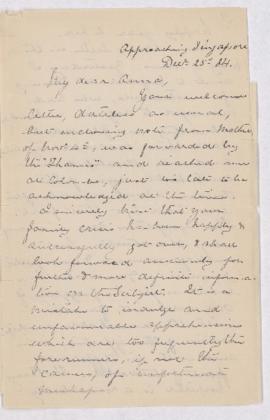 Approaching Singapore
Decr. 25th 84.
My dear Anna,
Your welcome
letter, dateless as usual,
but enclosing note from Mother
of Novr 4th, was forwarded by
the "Thames" and reached me
at Colombo, just too late to be
acknowledged at the time.
I sincerely trust that your
family crisis has been happily &
successfully got over, & shall
look forward anxiously for
further & more definite informa-
tion on the subject. It is a
mistake to indulge
unfavourable apprehensions
which are too frequently the
forerunners, if not the
causes, of unfortunate
mishaps